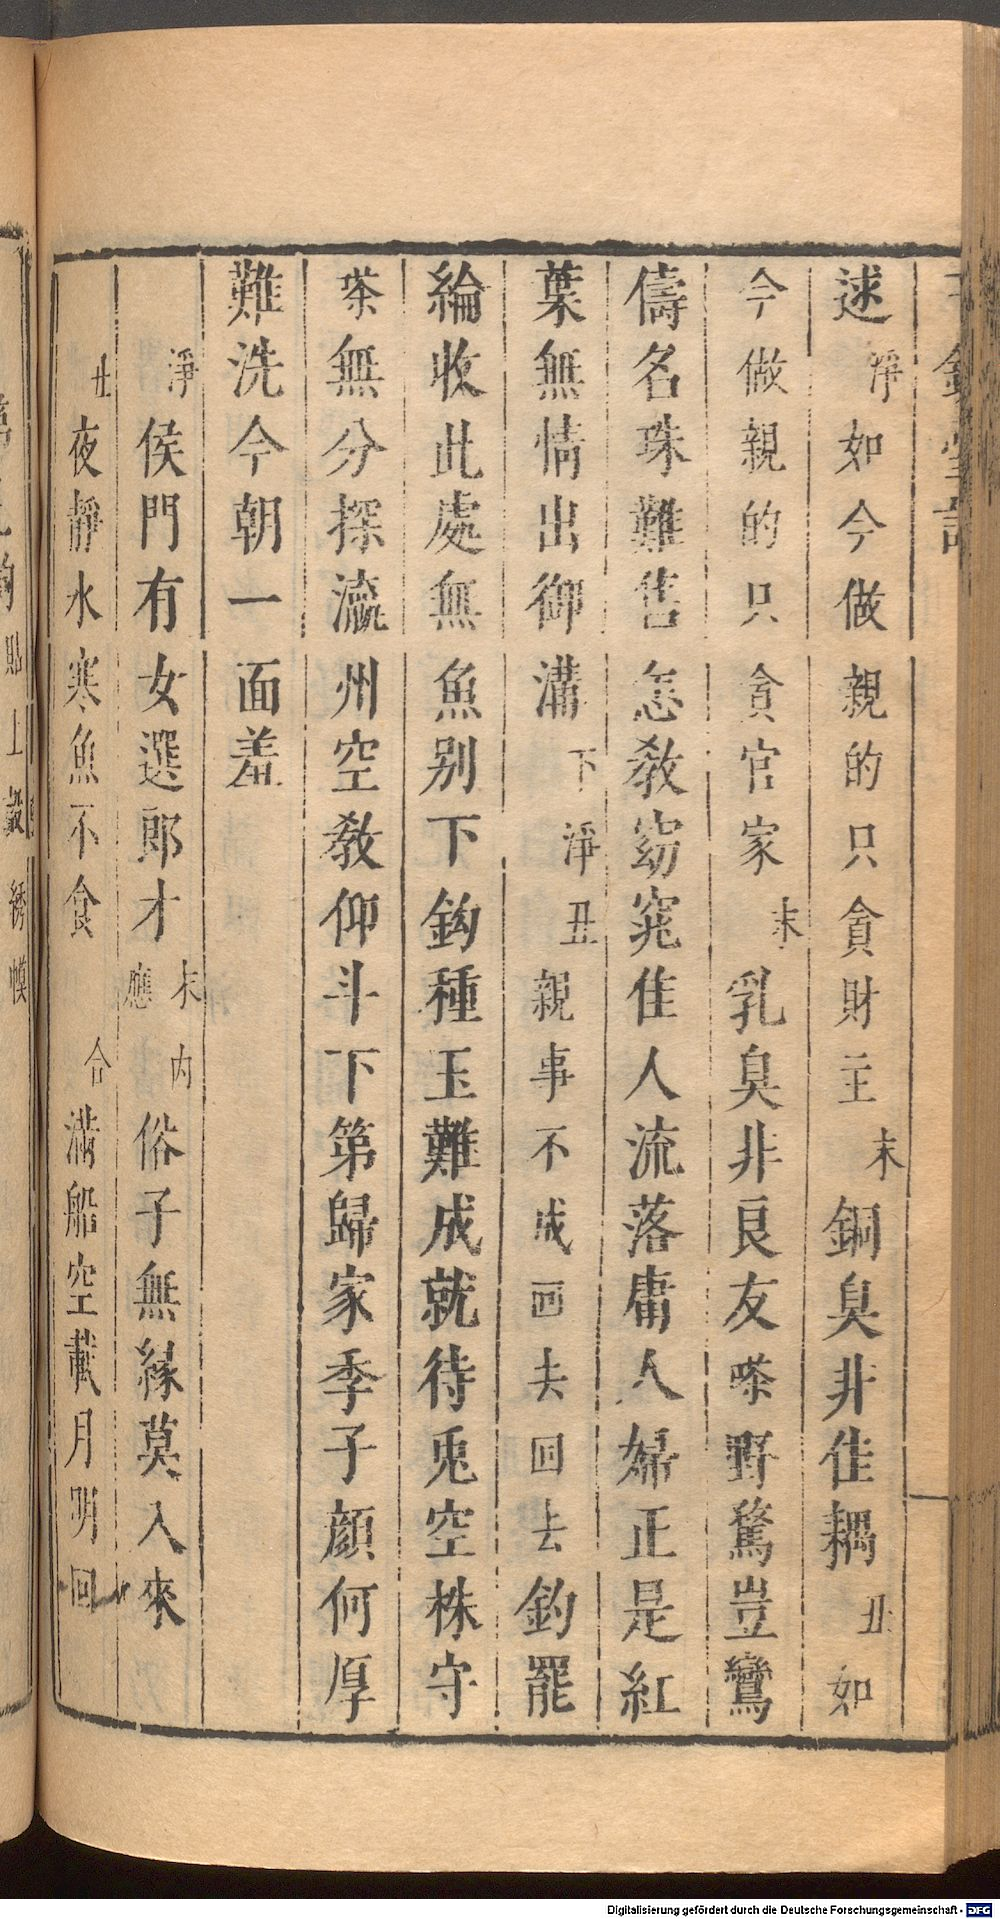 逑淨如今做親的只貪財主末銅臭非佳耦丑如
今做親的只貪官家末乳臭非良友嗏野鶩豈鸞
儔名珠難售怎教窈窕佳人流落庸人婦正是紅
葉無情出御溝下淨丑親事不成回去回去釣罷
綸收此處無魚別下鈎種玉難成就待兎空株守
嗏無分探瀛州空教仰斗下第歸家季子顔何厚
難洗今朝一面羞
淨侯門有女選郎才末内應俗子無緣莫入來
丑夜靜水寒魚不食合滿船空載月明回
貼上
綉幙
Digitalisierung gefördert durch die Deutsche Forschungsgemeinschaft - DFG